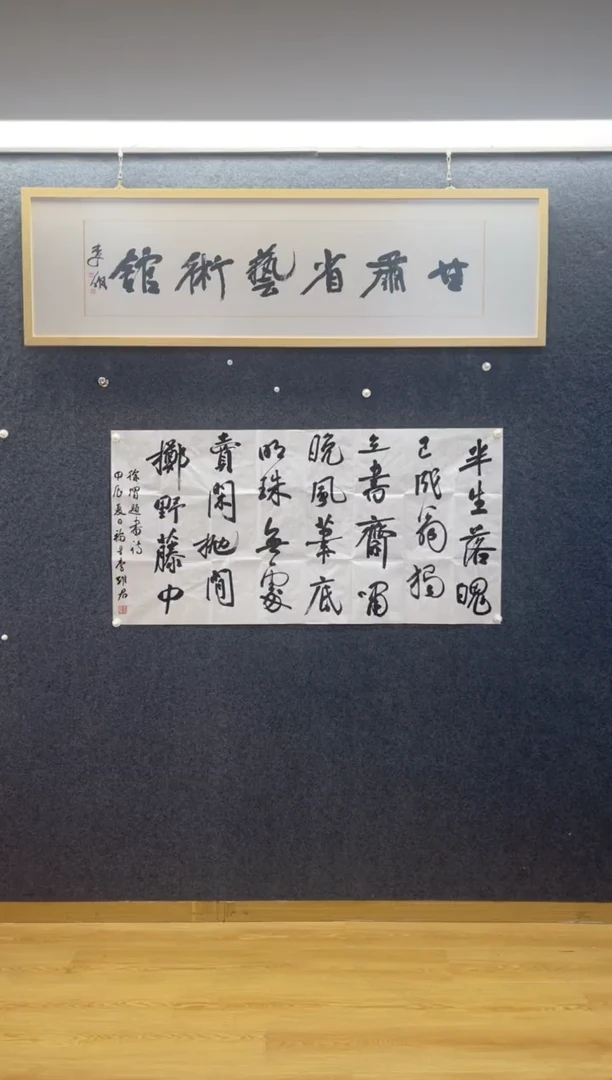 甘肅省藝術館
半生落魄
已成翁獨
立書齋嘯
晚風筆底
明珠無處
賣閑拋閒
擲野藤中
徐渭題畫詩
甲辰夏日